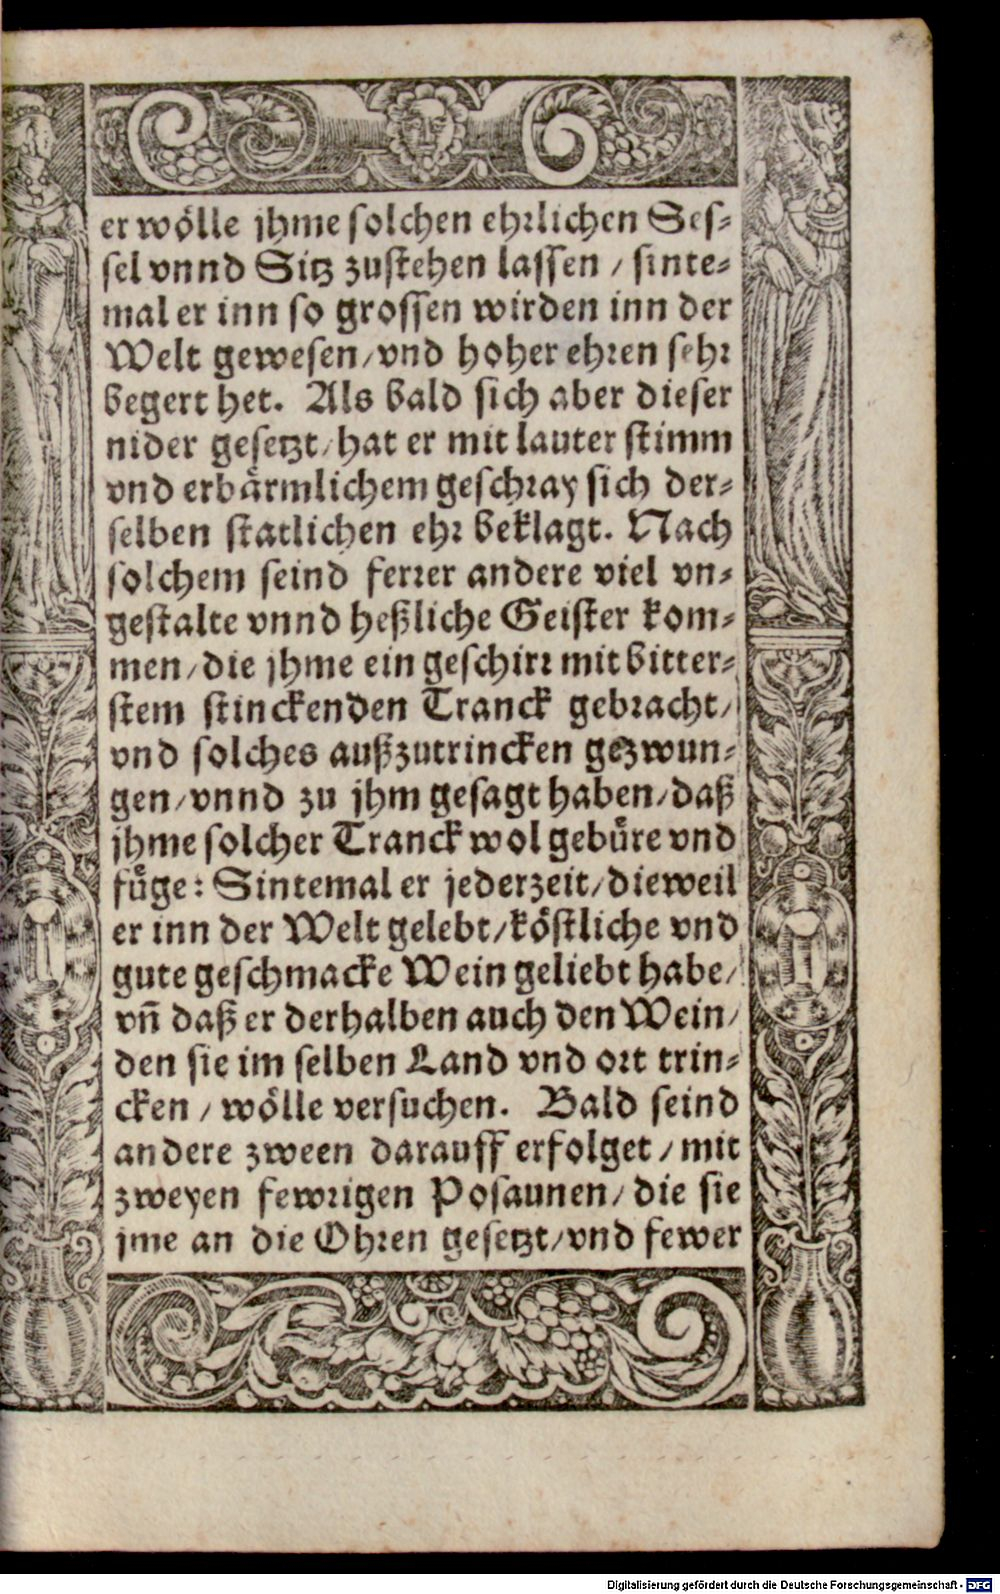 er wölle jhme solchen ehrlichen Ses⸗
sel vnnd Sitz zustehen lassen / sinte⸗
mal er inn so grossen wirden inn der
Welt gewesen / vnd hoher ehren sehr
begert het. Als bald sich aber dieser
nider gesetzt / hat er mit lauter stimm
vnd erbärmlichem geschray sich der⸗
selben statlichen ehr beklagt. Nach
solchem seind ferrer andere viel vn⸗
gestalte vnnd heßliche Geister kom⸗
men / die jhme ein geschirr mit bitter⸗
stem stinckenden Tranck gebracht /
vnd solches außzutrincken gezwun⸗
gen / vnnd zu jhm gesagt haben / daß
jhme solcher Tranck wol gebüre vnd
füge: Sintemal er jederzeit / dieweil
er inn der Welt gelebt / köstliche vnd
gute geschmacke Wein geliebt habe /
vñ daß er derhalben auch den Wein /
den sie im selben Land vnd ort trin⸗
cken / wölle versuchen. Bald seind
andere zween darauff erfolget / mit
zweyen fewrigen Posaunen / die sie
jme an die Ohren gesetzt / vnd fewer
Digitalisierung gefördert durch die Deutsche Forschungsgemeinschaft - DFG